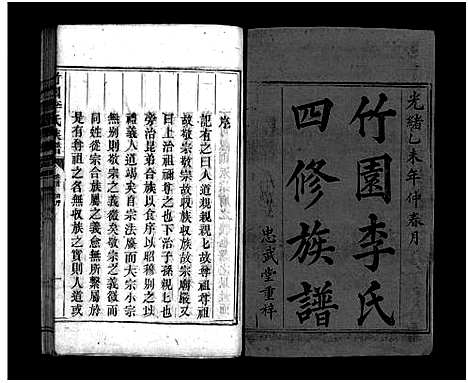 光緒乙未年仲春月
竹園李氏
四修族譜
忠武堂重梓
序
記有之曰人道親親親親也故尊祖尊祖
故敬宗敬宗故收族收族故宗廟嚴又
曰上治祖禰尊之也下治子孫親親也
旁治昆弟合族以食序以昭穆別之以
禮義人道竭矣自宗法廣而大宗小宗
無別則敬宗之義微矣敬宗之義微而
同姓從宗合族屬之義愈無所繫屬於
是有尊祖之名無收族之實則人道或